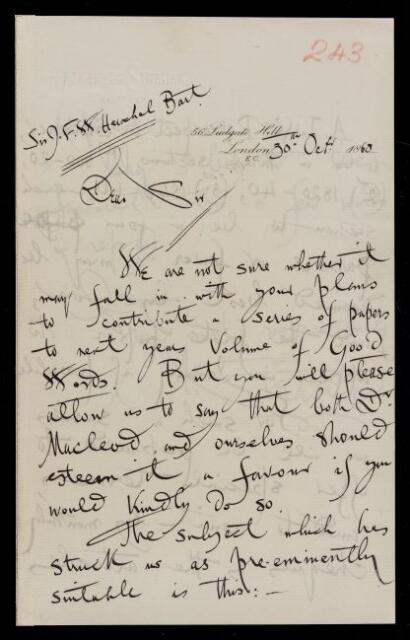 243
Sir J. F. W. Herschel Bart.
56 Ludgate Hill
London 30th Oct. 1860
E.C.
Dear Sir
We are not sure whether it
may fall in with your plans
to contribute a series of papers
to next years Volume of Good
Words. But you will please
allow us to say that both Dr
Macleod and ourselves should
esteem it a favour if you
would kindly do so.
The subject which has
struck us as pre-eminently
suitable is this:—